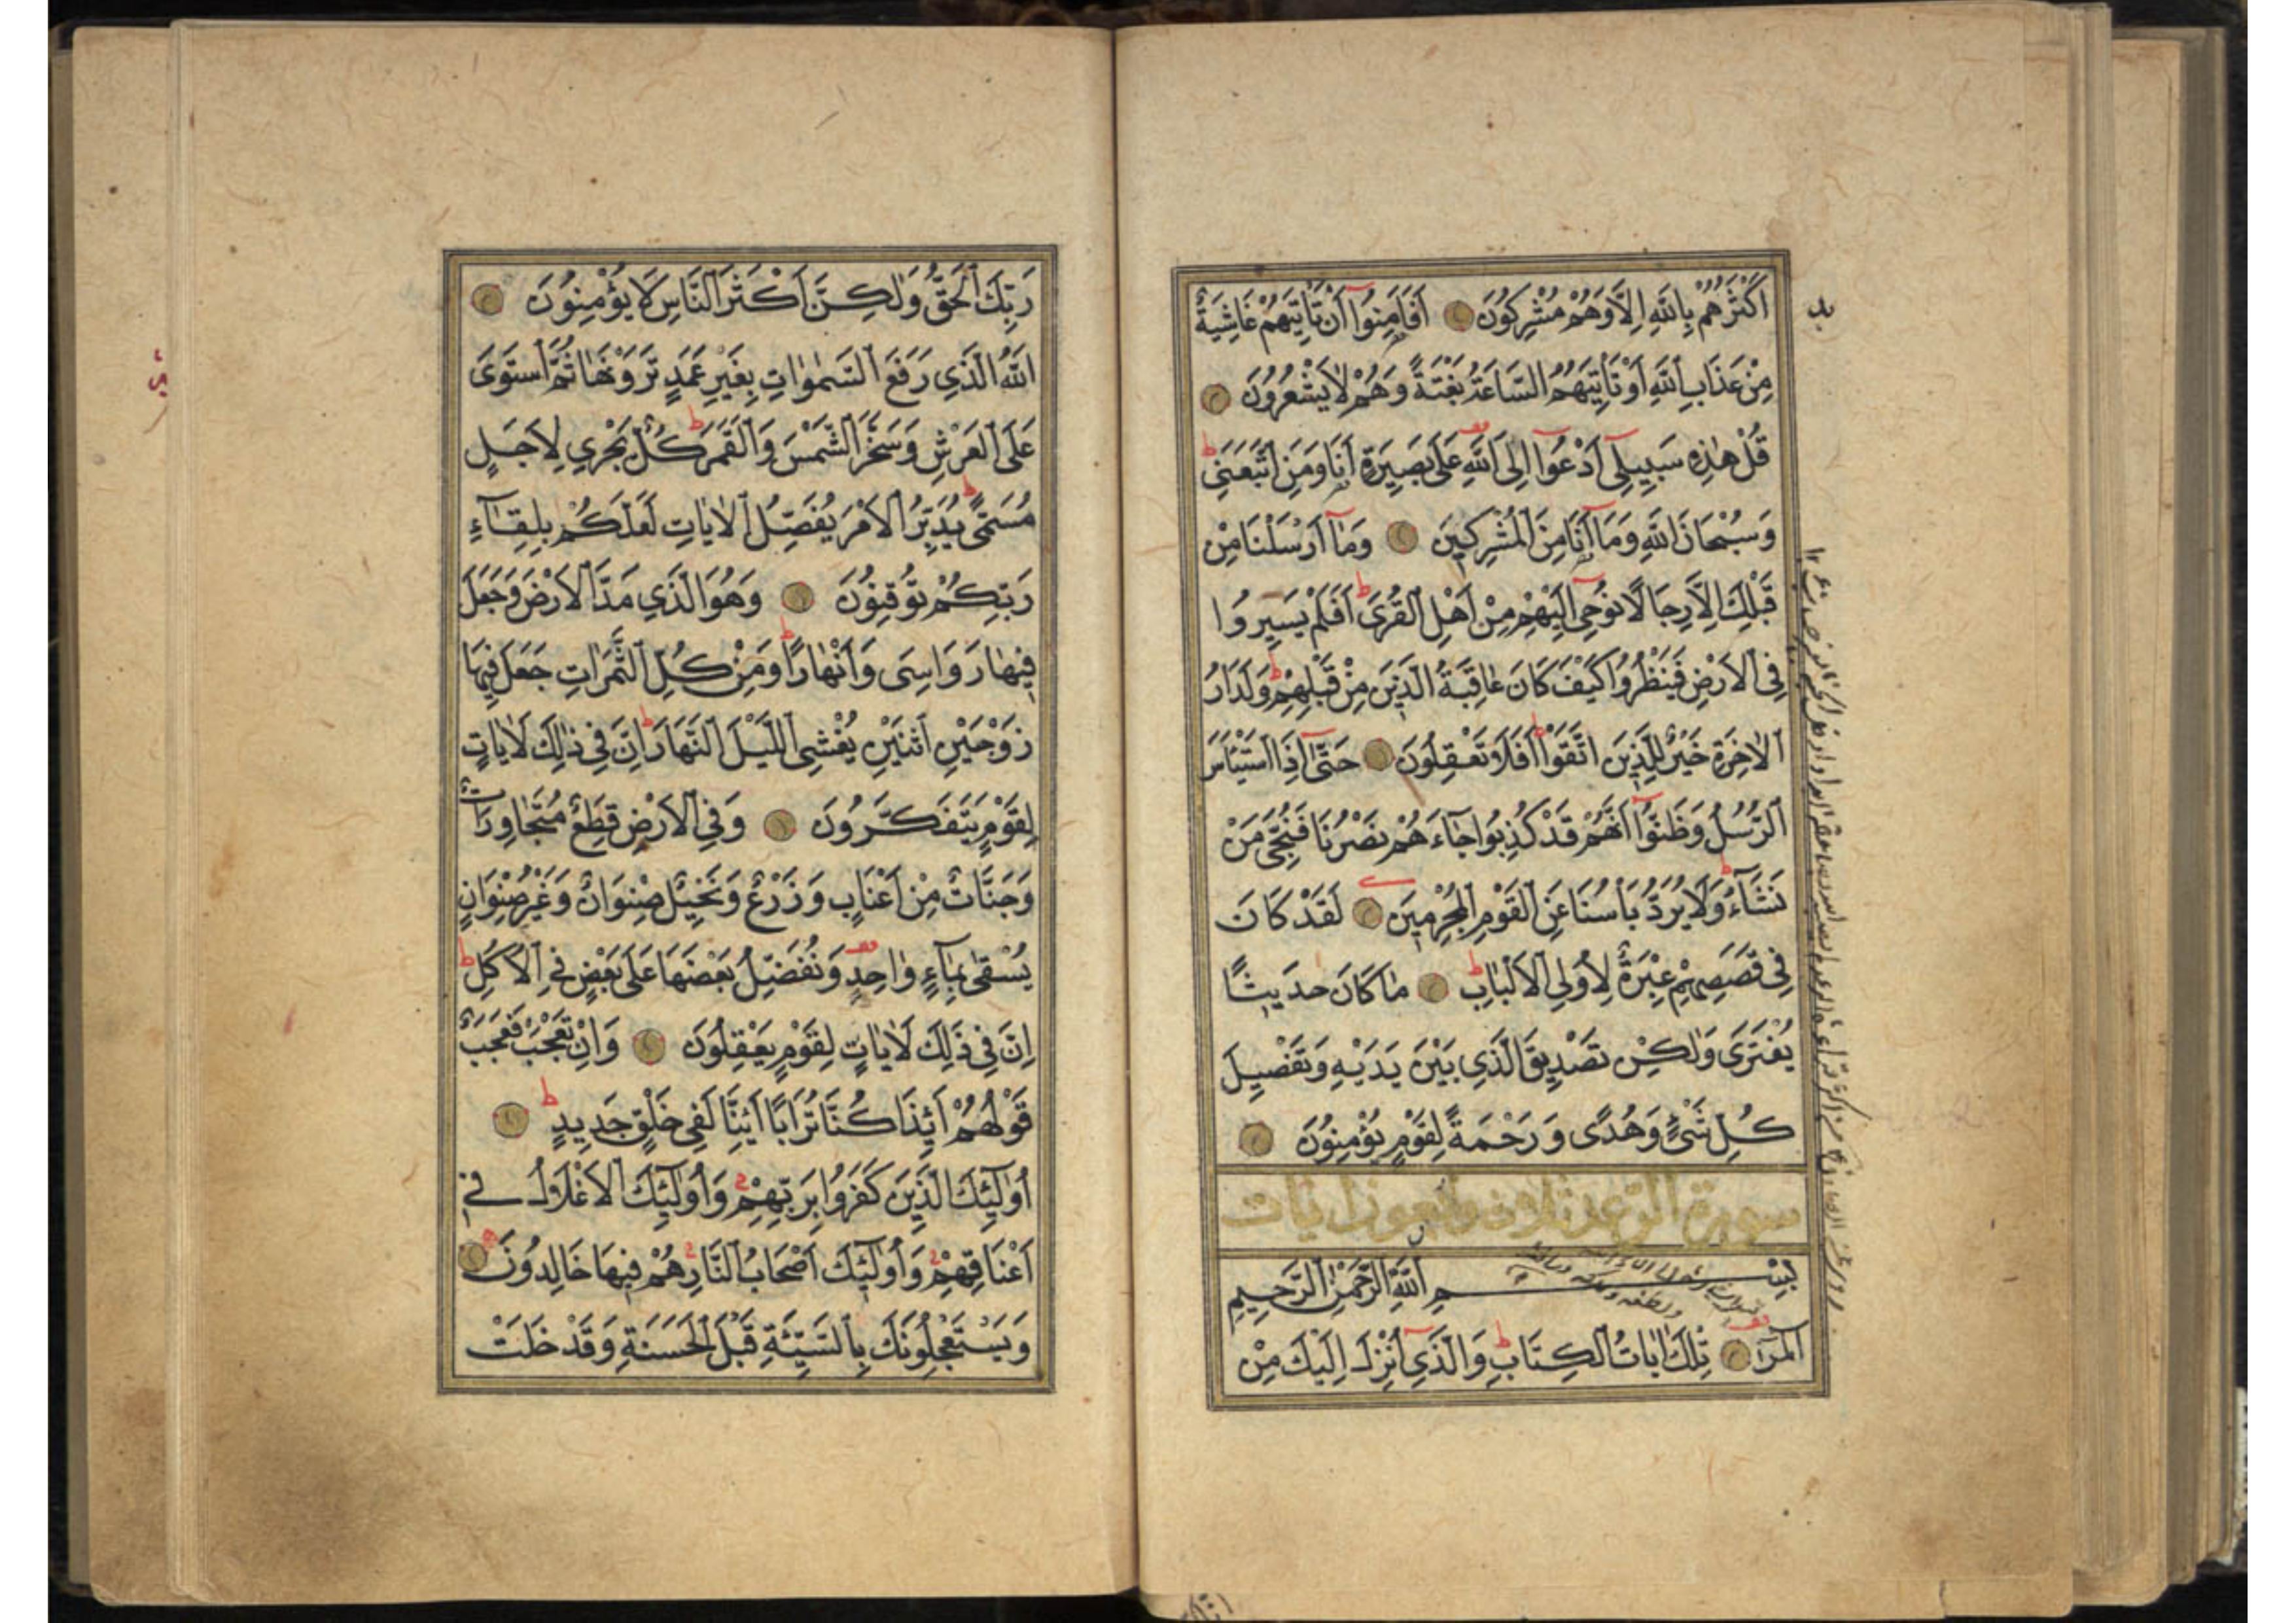 اَكْثَرُهُمْ بِاللّٰهِ اِلَّا وَهُمْ مُشْرِكُونَ اَفَاَمِنُوٓا اَنْ تَاْتِيَهُمْ غَاشِيَةٌ
مِنْ عَذَابِ اللّٰهِ اَوْ تَاْتِيَهُمُ السَّاعَةُ بَغْتَةً وَهُمْ لَا يَشْعُرُونَ
قُلْ هٰذِهِ سَبِيلِٓى اَدْعُوٓا اِلَى اللّٰهِ عَلٰى بَصِيرَةٍ اَنَا وَمَنِ اتَّبَعَنِى
وَسُبْحَانَ اللّٰهِ وَمَٓا اَنَا مِنَ الْمُشْرِكِينَ وَمَٓا اَرْسَلْنَا مِنْ
قَبْلِكَ اِلَّا رِجَالًا نُوحِٓى اِلَيْهِمْ مِنْ اَهْلِ الْقُرٰى اَفَلَمْ يَسِيرُوا
فِى الْاَرْضِ فَيَنْظُرُوا كَيْفَ كَانَ عَاقِبَةُ الَّذِينَ مِنْ قَبْلِهِمْ وَلَدَارُ
الْاٰخِرَةِ خَيْرٌ لِلَّذِينَ اتَّقَوْا اَفَلَا تَعْقِلُونَ حَتّٰٓى اِذَا اسْتَيْئَسَ
الرُّسُلُ وَظَنُّوٓا اَنَّهُمْ قَدْ كُذِبُوا جَٓاءَهُمْ نَصْرُنَا فَنُجِّىَ مَنْ
نَشَٓاءُ وَلَا يُرَدُّ بَاْسُنَا عَنِ الْقَوْمِ الْمُجْرِمِينَ لَقَدْ كَانَ
فِى قَصَصِهِمْ عِبْرَةٌ لِاُولِى الْاَلْبَابِ مَا كَانَ حَدِيثًا
يُفْتَرٰى وَلٰكِنْ تَصْدِيقَ الَّذِى بَيْنَ يَدَيْهِ وَتَفْصِيلَ
كُلِّ شَىْءٍ وَهُدًى وَرَحْمَةً لِقَوْمٍ يُؤْمِنُونَ
سورة الرعد ثلاث واربعون ايات
بِسْمِ اللّٰهِ الرَّحْمٰنِ الرَّحِيمِ
الٓمٓرٰ تِلْكَ اٰيَاتُ الْكِتَابِ وَالَّذِٓى اُنْزِلَ اِلَيْكَ مِنْ
رَبِّكَ الْحَقُّ وَلٰكِنَّ اَكْثَرَ النَّاسِ لَا يُؤْمِنُونَ
اَللّٰهُ الَّذِى رَفَعَ السَّمٰوَاتِ بِغَيْرِ عَمَدٍ تَرَوْنَهَا ثُمَّ اسْتَوٰى
عَلَى الْعَرْشِ وَسَخَّرَ الشَّمْسَ وَالْقَمَرَ كُلٌّ يَجْرِى لِاَجَلٍ
مُسَمًّى يُدَبِّرُ الْاَمْرَ يُفَصِّلُ الْاٰيَاتِ لَعَلَّكُمْ بِلِقَٓاءِ
رَبِّكُمْ تُوقِنُونَ وَهُوَ الَّذِى مَدَّ الْاَرْضَ وَجَعَلَ
فِيهَا رَوَاسِىَ وَاَنْهَارًا وَمِنْ كُلِّ الثَّمَرَاتِ جَعَلَ فِيهَا
زَوْجَيْنِ اثْنَيْنِ يُغْشِى الَّيْلَ النَّهَارَ اِنَّ فِى ذٰلِكَ لَاٰيَاتٍ
لِقَوْمٍ يَتَفَكَّرُونَ وَفِى الْاَرْضِ قِطَعٌ مُتَجَاوِرَاتٌ
وَجَنَّاتٌ مِنْ اَعْنَابٍ وَزَرْعٌ وَنَخِيلٌ صِنْوَانٌ وَغَيْرُ صِنْوَانٍ
يُسْقٰى بِمَٓاءٍ وَاحِدٍ وَنُفَضِّلُ بَعْضَهَا عَلٰى بَعْضٍ فِى الْاُكُلِ
اِنَّ فِى ذٰلِكَ لَاٰيَاتٍ لِقَوْمٍ يَعْقِلُونَ وَاِنْ تَعْجَبْ فَعَجَبٌ
قَوْلُهُمْ ءَاِذَا كُنَّا تُرَابًا ءَاِنَّا لَفِى خَلْقٍ جَدِيدٍ
اُولٰٓئِكَ الَّذِينَ كَفَرُوا بِرَبِّهِمْ وَاُولٰٓئِكَ الْاَغْلَالُ فِٓى
اَعْنَاقِهِمْ وَاُولٰٓئِكَ اَصْحَابُ النَّارِ هُمْ فِيهَا خَالِدُونَ
وَيَسْتَعْجِلُونَكَ بِالسَّيِّئَةِ قَبْلَ الْحَسَنَةِ وَقَدْ خَلَتْ